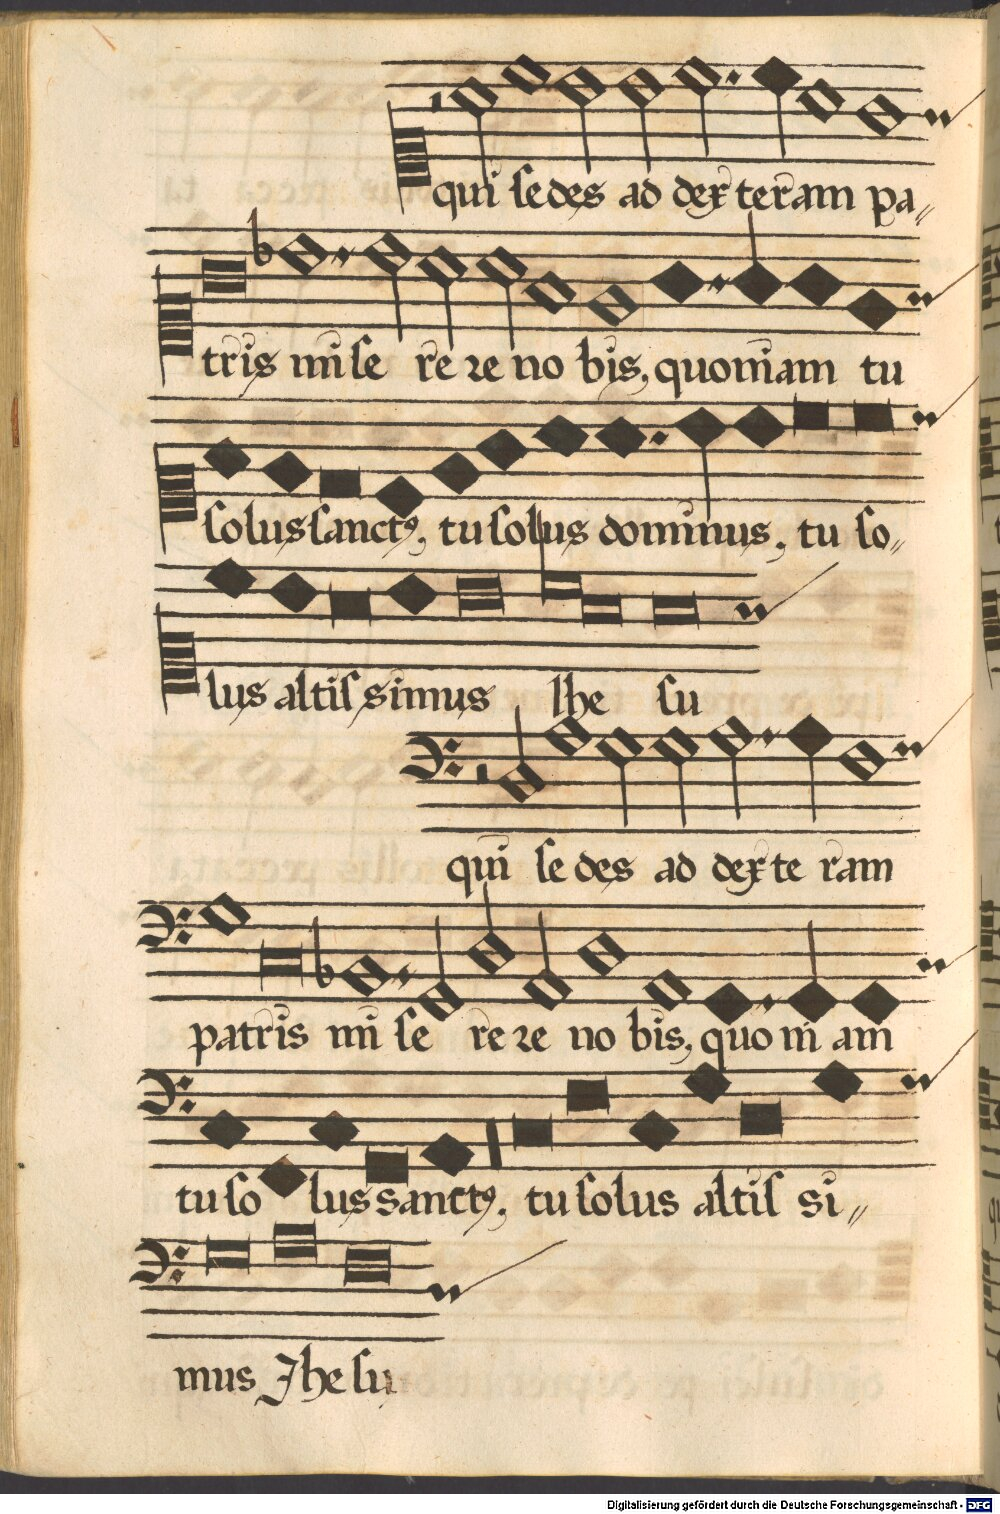 qui sedes ad dexteram pa〃
tris mise rere no bis, quoniam tu
solus sanctꝰ, tu solus dominus, tu so〃
lus altis simus Jhe su
qui se des ad dexte ram
patris mi se rere no bis, quoni am
tu so lus sanctꝰ, tu solus altis si〃
mus Jhe su
Digitalisierung gefördert durch die Deutsche Forschungsgemeinschaft - DFG